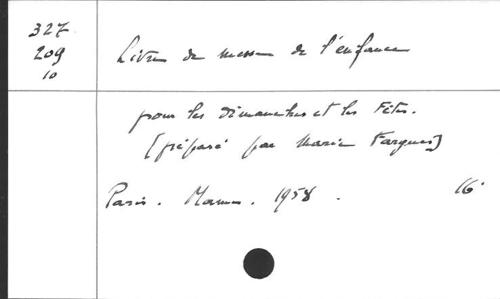 327
209
10
Livre de messe de l'enfance
pour les dimanches et les Fêtes.
[préparé par Marie Fargues]
Paris. Mame. 1958. 16°